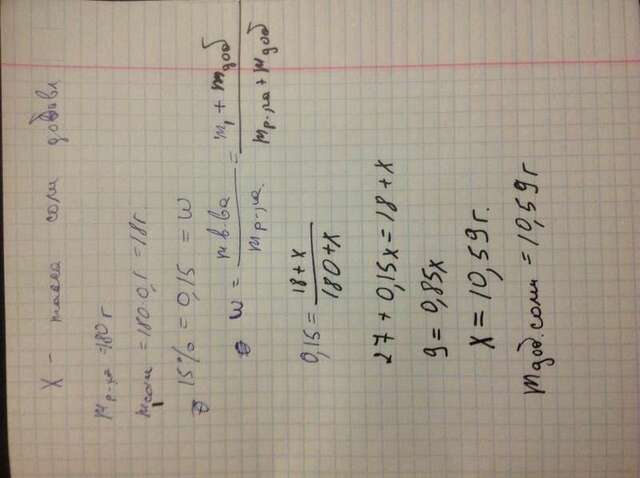 X - масса соли добавл
m р-ра = 180 г
m соли = 180·0,1 = 18 г.
15% = 0,15 = W
W = m в.ва / m р-ра. = m₁ + m доб / m р-ра + m доб
0,15 = 18+x / 180+x
27 + 0,15x = 18 + x
9 = 0,85x
X = 10,59 г.
m доб. соли = 10,59 г